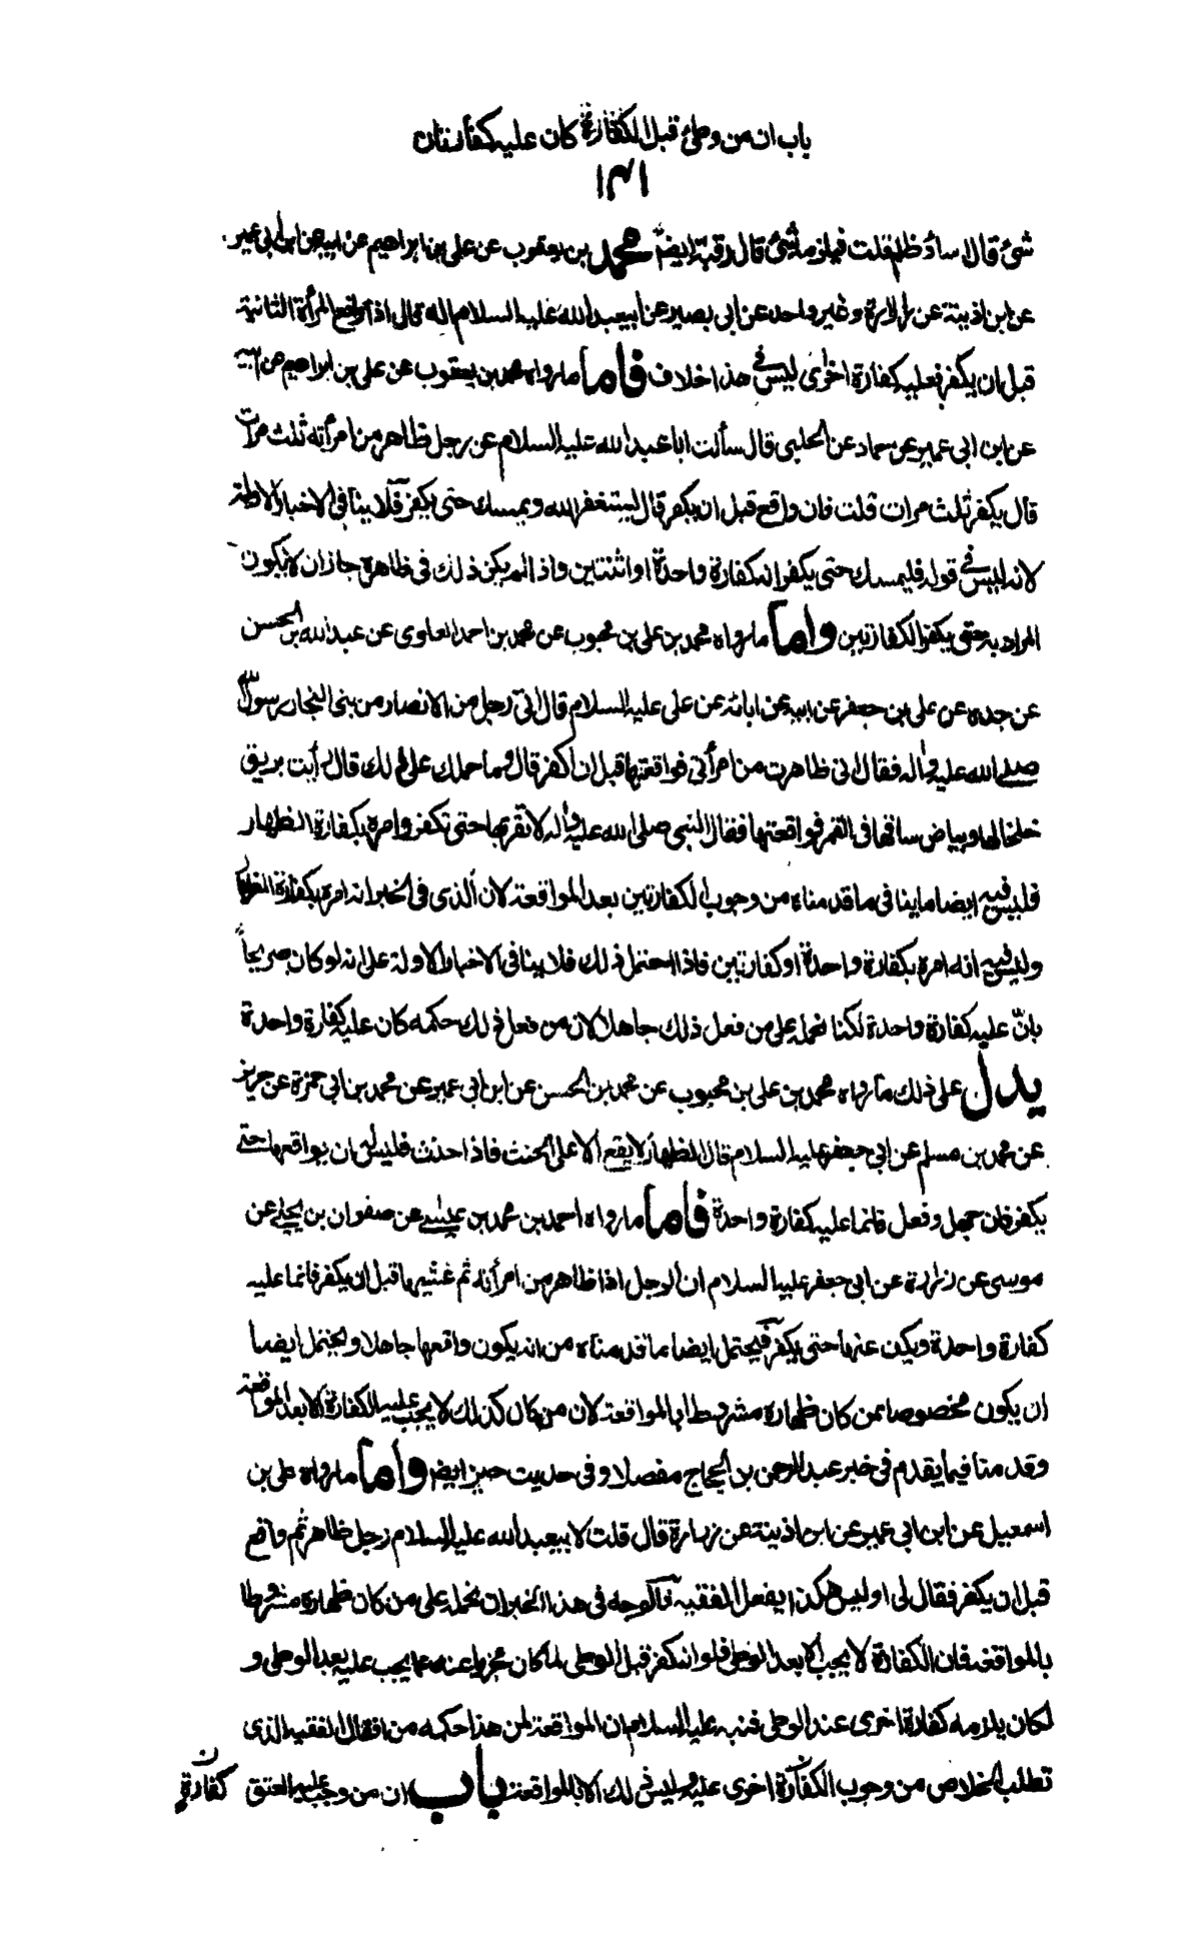 باب ان من وطئ قبل الكفارة كان عليه كفارتان
١٣١
شئ قال اساء وظلم قلت فيلزمه شئ قال رقبة ايضا محمد بن يعقوب عن علي بن ابراهيم عن ابيه عن ابن ابي عمير
عن ابن اذينة عن زرارة وغير واحد عن ابي بصير عن ابيعبدالله عليه السلام انه قال اذا واقع المرأة الثانية
قبل ان يكفر فعليه كفارة اخرى ليس في هذا خلاف فاما ما رواه محمد بن يعقوب عن علي بن ابراهيم عن ابيه
عن ابن ابي عمير عن حماد عن الحلبي قال سألت ابا عبدالله عليه السلام عن رجل ظاهر من امرأته ثلث مرات
قال يكفر ثلث مرات قلت فان واقع قبل ان يكفر قال ليستغفر الله ويمسك حتى يكفر فلا ينافي الاخبار الاولة
لانه ليس في قوله فليمسك حتى يكفر ان الكفارة واحدة او اثنتين واذا لم يكن ذلك في ظاهره جاز ان يكون
المراد به حتى يكفر الكفارتين واما ما رواه محمد بن علي بن محبوب عن محمد بن احمد العلوي عن عبدالله بن الحسن
عن جده عن علي بن جعفر عن ابيه عن ابائه عن علي عليه السلام قال اتى رجل من الانصار من بني النجار رسول الله
صلى الله عليه واله فقال اني ظاهرت من امرأتي فواقعتها قبل ان اكفر قال وما حملك على ذلك قال رأيت بريق
خلخالها وبياض ساقها في القمر فواقعتها فقال النبي صلى الله عليه واله لا تقربها حتى تكفر وامره بكفارة الظهار
فليس فيه ايضا ما ينافي ما قدمناه من وجوب الكفارتين بعد المواقعة لان الذي في الخبر انه امره بكفارة الظهار
وليس فيه انه امره بكفارة واحدة او كفارتين فاذا احتمل ذلك فلا ينافي الاخبار الاولة على انه لو كان صريحاً
بانّ عليه كفارة واحدة لكنا نحمله على من فعل ذلك جاهلا لان من فعل ذلك حكمه كان عليه كفارة واحدة
يدل على ذلك ما رواه محمد بن علي بن محبوب عن محمد بن الحسن عن ابن ابي عمير عن محمد بن ابي حمزة عن حريز
عن محمد بن مسلم عن ابي جعفر عليه السلام قال الظهار لا يقع الا على الحنث فاذا حنث فليس له ان يواقعها حتى
يكفر فان جهل وفعل فانما عليه كفارة واحدة فاما ما رواه احمد بن محمد بن عيسى عن صفوان بن يحيى عن
موسى عن زرارة عن ابي جعفر عليه السلام ان الرجل اذا ظاهر من امرأته ثم غشيها قبل ان يكفر فانما عليه
كفارة واحدة ويكف عنها حتى يكفر فيحتمل ايضا ما قدمناه من انه يكون واقعها جاهلا ويحتمل ايضا
ان يكون مخصوصا بمن كان ظهاره مشروطا بالمواقعة لان من كان كذلك لا يجب عليه الكفارة الا بعد المواقعة
وقد منا فيما يقدم في خبر عبد الرحمن بن الحجاج مفصلا وفي حديث حريز ايضا واما ما رواه علي بن
اسمعيل عن ابن ابي عمير عن ابن اذينة عن زرارة قال قلت لابيعبدالله عليه السلام رجل ظاهر ثم واقع
قبل ان يكفر فقال لي اوليس هكذا يفعل الفقيه فالوجه في هذا الخبر ان نحمله على من كان ظهاره مشروطا
بالمواقعة فان الكفارة لا يجب الا بعد الوطي فلو انه كفر قبل الوطي لما كان مجزيا عنه عما يجب عليه بعد الوطي و
لكان يلزمه كفارة اخرى عند الوطي فنبه عليه السلام ان المواقعة لمن هذا حكمه من افعال الفقيه الذي
تطلب الخلاص من وجوب الكفارة اخرى عليه وليس ذلك الا بالمواقعة باب ان من وجب عليه العتق كفارة